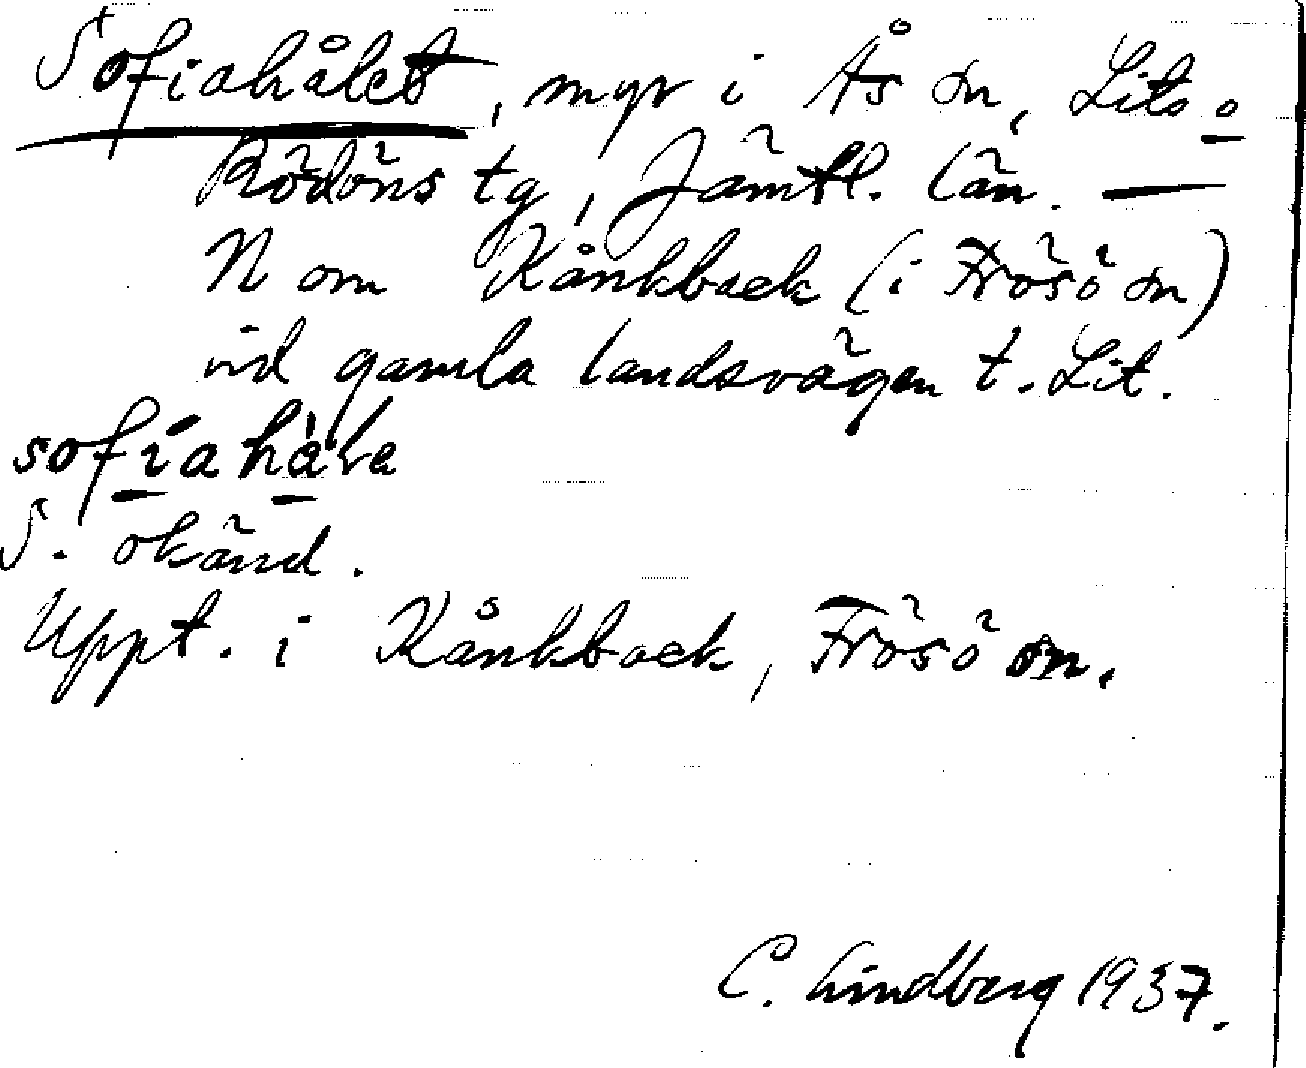 Sofiahålet, myr i Ås sn, Lits o
Rödöns tg, Jämtl. län. —
N om Kånkback (i Frösö sn)
vid gamla landsvägen t. Lit.
S. okänd.
Uppt. i Kånkback, Frösö sn.
C. Lindberg 1937.